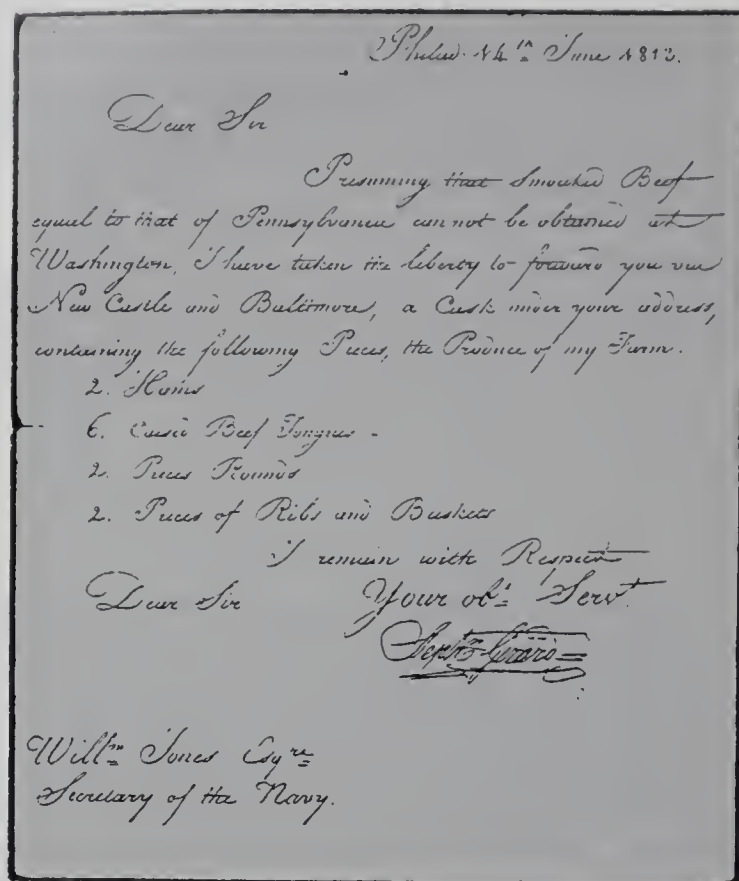 Philad. 14th June 1813.
Dear Sir
Presuming that Smoaked Beef
equal to that of Pennsylvania cannot be obtained at
Washington, I have taken the liberty to forward you via
New Castle and Baltimore, a Cask under your address,
containing the following Pieces, the Produce of my Farm.
2. Hams
6. Beef Tongues -
2. Pieces Rounds
2. Pieces of Ribs and Briskets
I remain with Respect
Dear Sir Your obt Servt
Stephn Girard
Willm Jones Esqre
Secretary of the Navy.